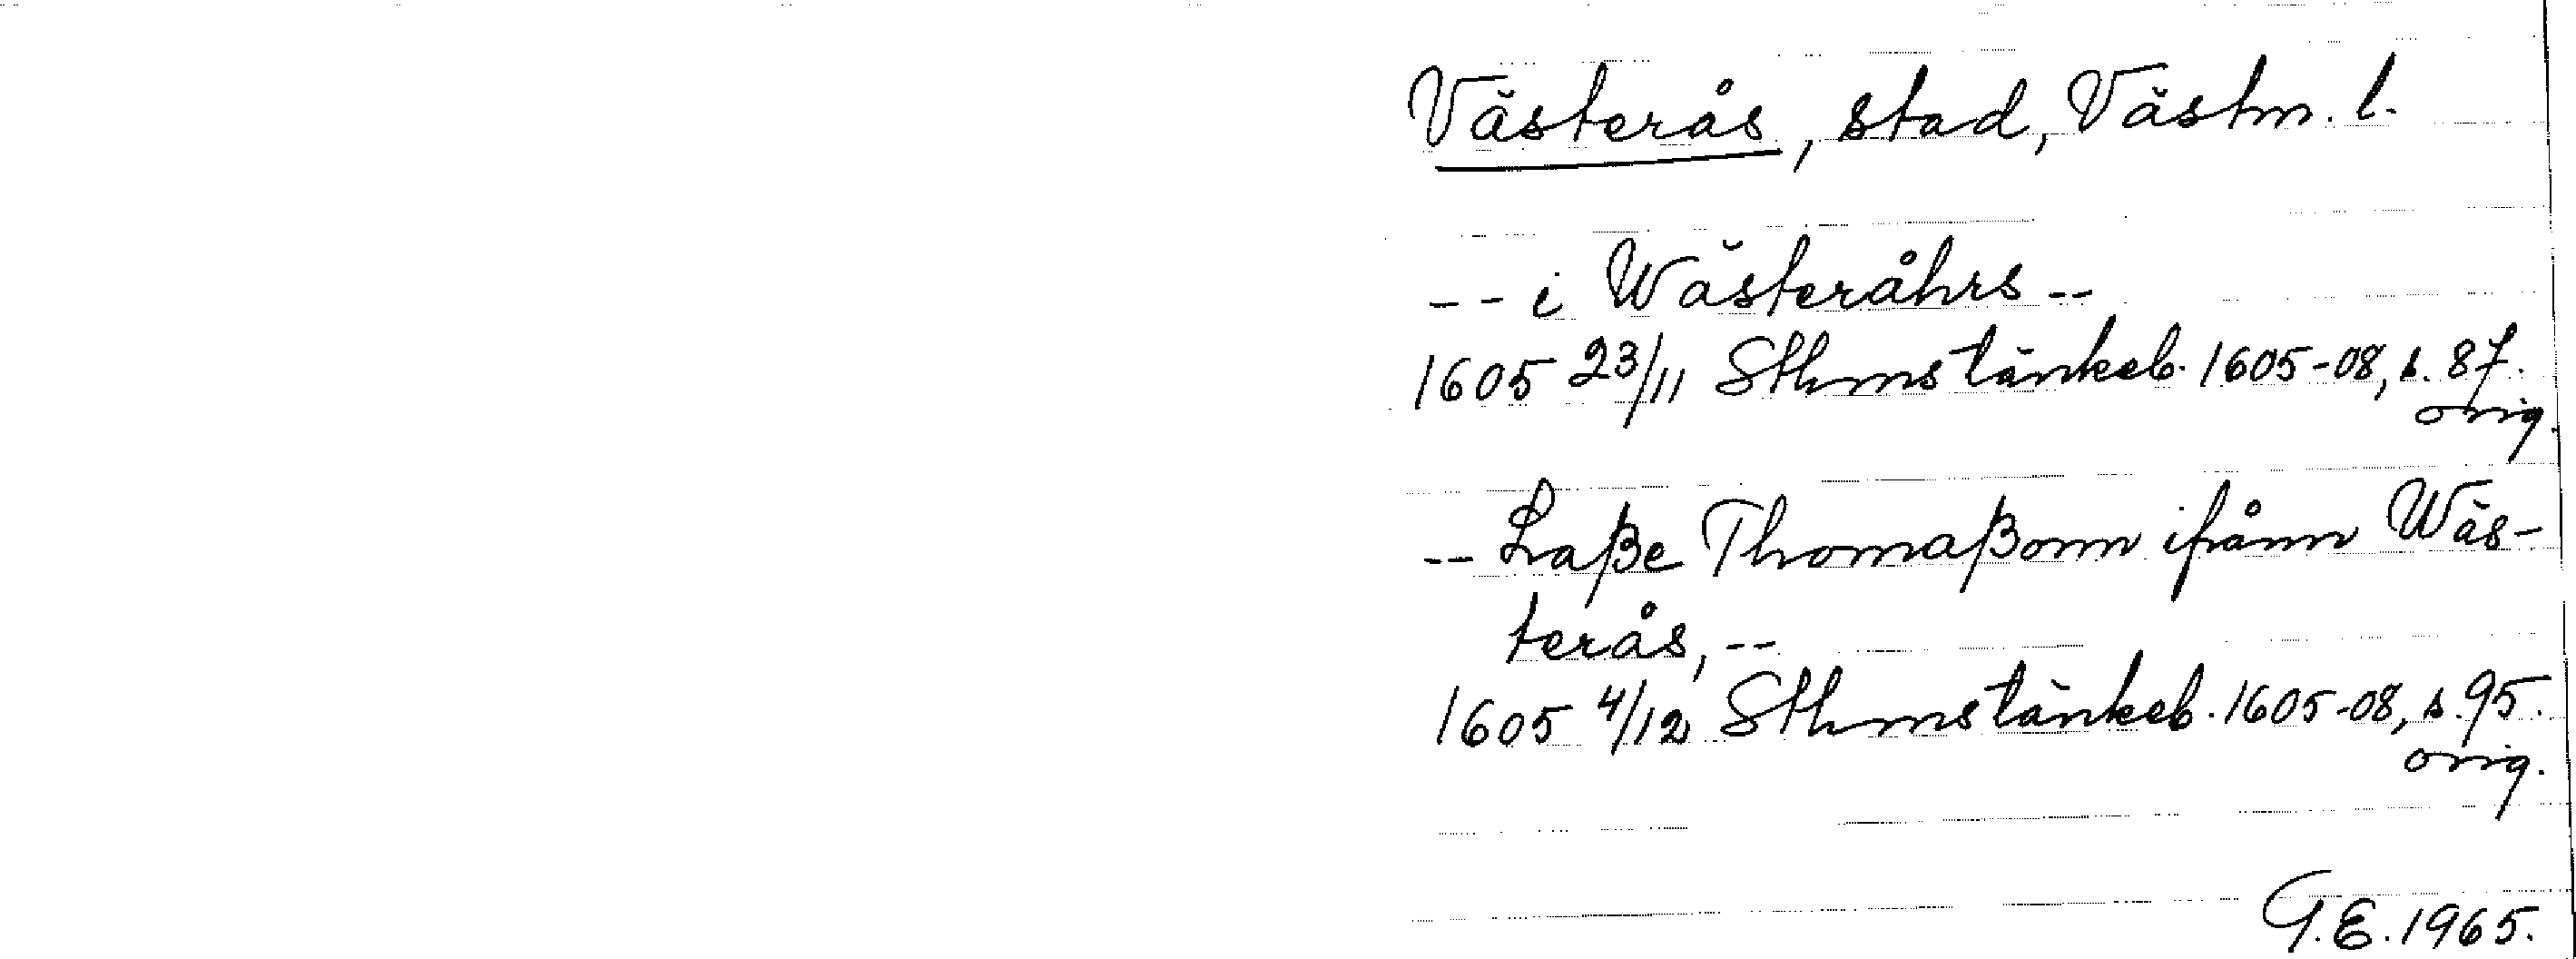 Västerås, stad, Västm. l.
-- i Wästeråhrs --
1605 23/11 Sthms tänkeb. 1605-08, s. 87.
orig.
-- Laße Thomaßonn ifrånn Wäs-
terås, --
1605 4/12 Sthms tänkeb. 1605-08, s. 95.
orig.
G.E. 1965.